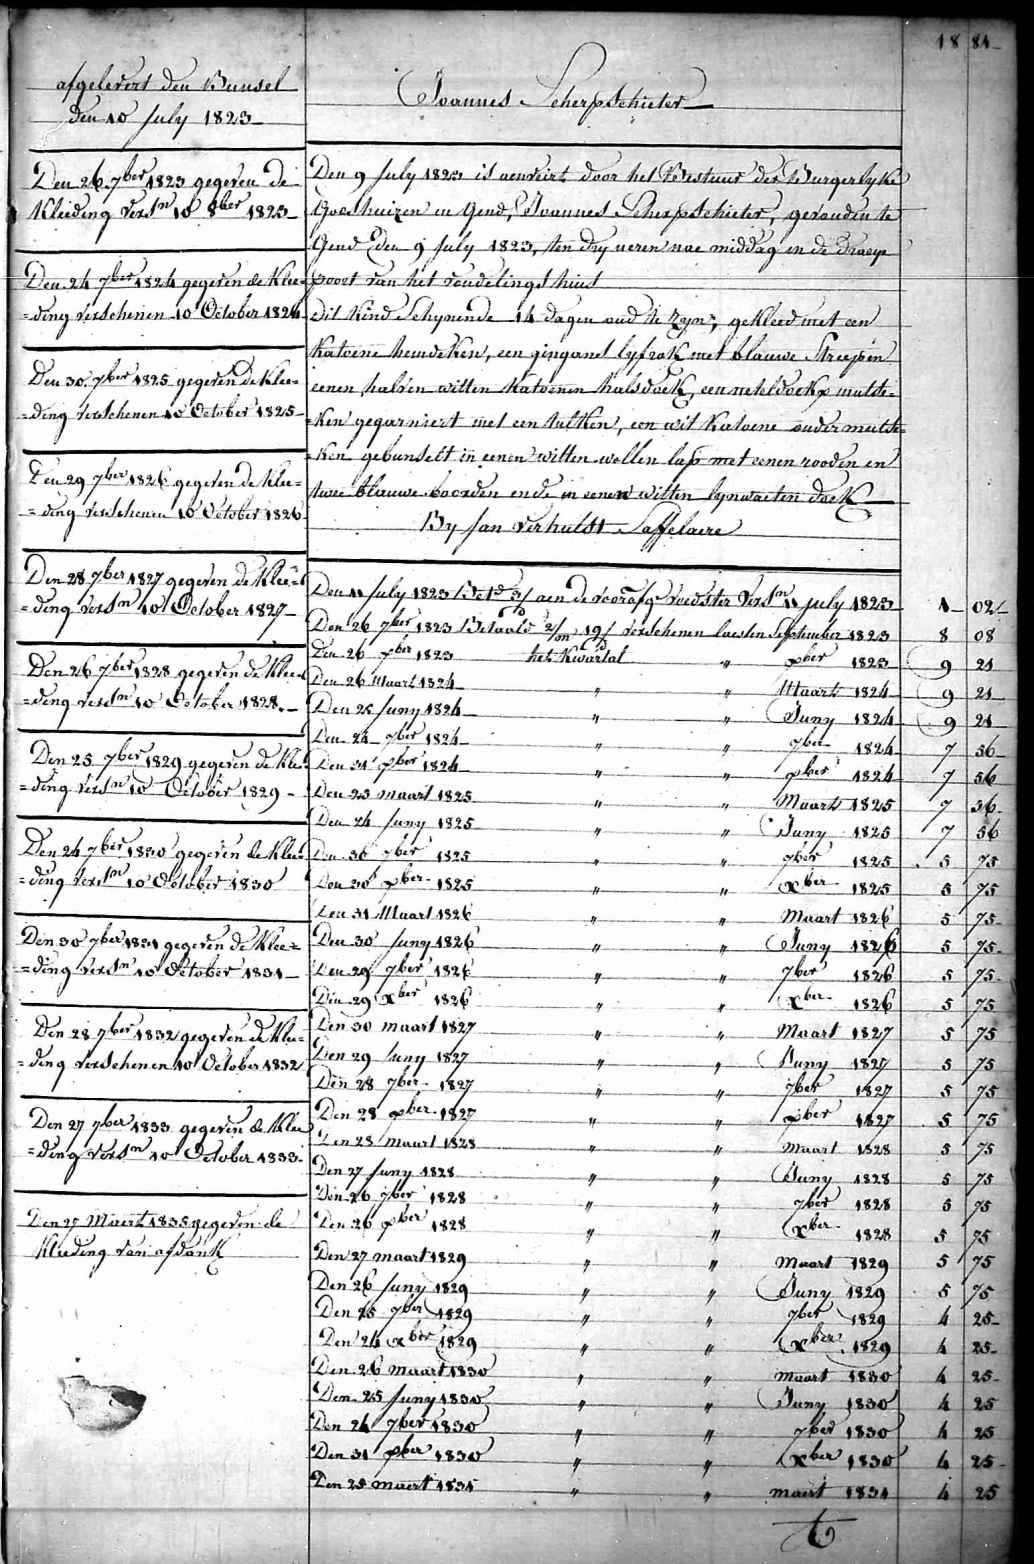 18 84
afgelevert den Bunsel
den 10 July 1823
Den 26 7ber 1823 gegeven de
Kleeding versn 10 8ber 1823
Den 24 7ber 1824 gegeven de Klee-
=ding verschenen 10 October 1824
Den 30 7ber 1825 gegeven de Klee-
=ding verschenen 10 October 1825
Den 29 7ber 1826 gegeven de Klee=
=ding verschenen 10 October 1826
Den 28 7ber 1827 gegeven de Klee=
=ding versn 10 October 1827
Den 26 7ber 1828 gegeven de Klee=
=ding versn 10 October 1828
Den 25 7ber 1829 gegeven de Klee=
=ding versn 10 October 1829
Den 24 7ber 1830 gegeven de Klee=
=ding versn 10 October 1830
Den 30 7ber 1831 gegeven de Klee=
=ding versn 10 October 1831
Den 28 7ber 1832 gegeven de Klee=
=ding verschenen 10 October 1832
Den 27 7ber 1833 gegeven de Klee
=ding versn 10 October 1833
Den 27 Maert 1835 gegeven de
Kleeding van afdank
Joannes Scherpschieter
Den 9 July 1823 is aenveirt door het Bestuur der Burgerlyke
Godshuizen in Gend, Joannes Scherpschieter, gevonden te
Gend den 9 July 1823, ten dry ueren nae middag in de Draey
poort van het vondelings huis
dit Kind Schynende 14 dagen oud te zyn, gekleed met een
Katoene hemdeken, een gingand lyfrok met blauwe Streepen
eenen halven witten Katoenen halsdoek, een neteldoekx mutse-
=ken gegarniert met een tulken, een wit Katoene onder mutse=
=ken gebunselt in eenen witten wollen lap met eenen rooden en
twee blauwe boorden ende in eenen witten lynwaeten doek
By Jan Verhulst Saffelaere
Den 11 July 1823 Betd 3/ aen de voorafg voedster Versn 11 July 1823 1 02
Den 26 7ber 1823 Betaald 2/m 19/d verschenen laesten September 1823 8 08
Den 26 xber 1823 het Kwartal " xber 1823 9 21
Den 26 Maart 1824 " " Maart 1824 9 21
Den 25 Juny 1824 " " Juny 1824 9 21
Den 24 7ber 1824 " " 7ber 1824 7 56
Den 31 xber 1824 " " xber 1824 7 56
Den 25 maart 1825 " " Maart 1825 7 56
Den 24 Juny 1825 " " Juny 1825 7 56
Den 30 7ber 1825 " " 7ber 1825 5 75
Den 30 xber 1825 " " xber 1825 5 75
Den 31 Maart 1826 " " Maart 1826 5 75
Den 30 Juny 1826 " " Juny 1826 5 75
Den 29 7ber 1826 " " 7ber 1826 5 75
Den 29 xber 1826 " " xber 1826 5 75
Den 30 maart 1827 " " Maart 1827 5 75
Den 29 Juny 1827 " " Juny 1827 5 75
Den 28 7ber 1827 " " 7ber 1827 5 75
Den 28 xber 1827 " " xber 1827 5 75
Den 28 maart 1828 " " Maart 1828 5 75
Den 27 Juny 1828 " " Juny 1828 5 75
Den 26 7ber 1828 " " 7ber 1828 5 75
Den 26 xber 1828 " " xber 1828 5 75
Den 27 maart 1829 " " Maart 1829 5 75
Den 26 Juny 1829 " " Juny 1829 5 75
Den 25 7ber 1829 " " 7ber 1829 4 25
Den 24 xber 1829 " " xber 1829 4 25
Den 26 maart 1830 " " maart 1830 4 25
Den 25 Juny 1830 " " Juny 1830 4 25
Den 24 7ber 1830 " " 7ber 1830 4 25
Den 31 xber 1830 " " xber 1830 4 25
Den 25 maert 1831 " " maert 1831 4 25